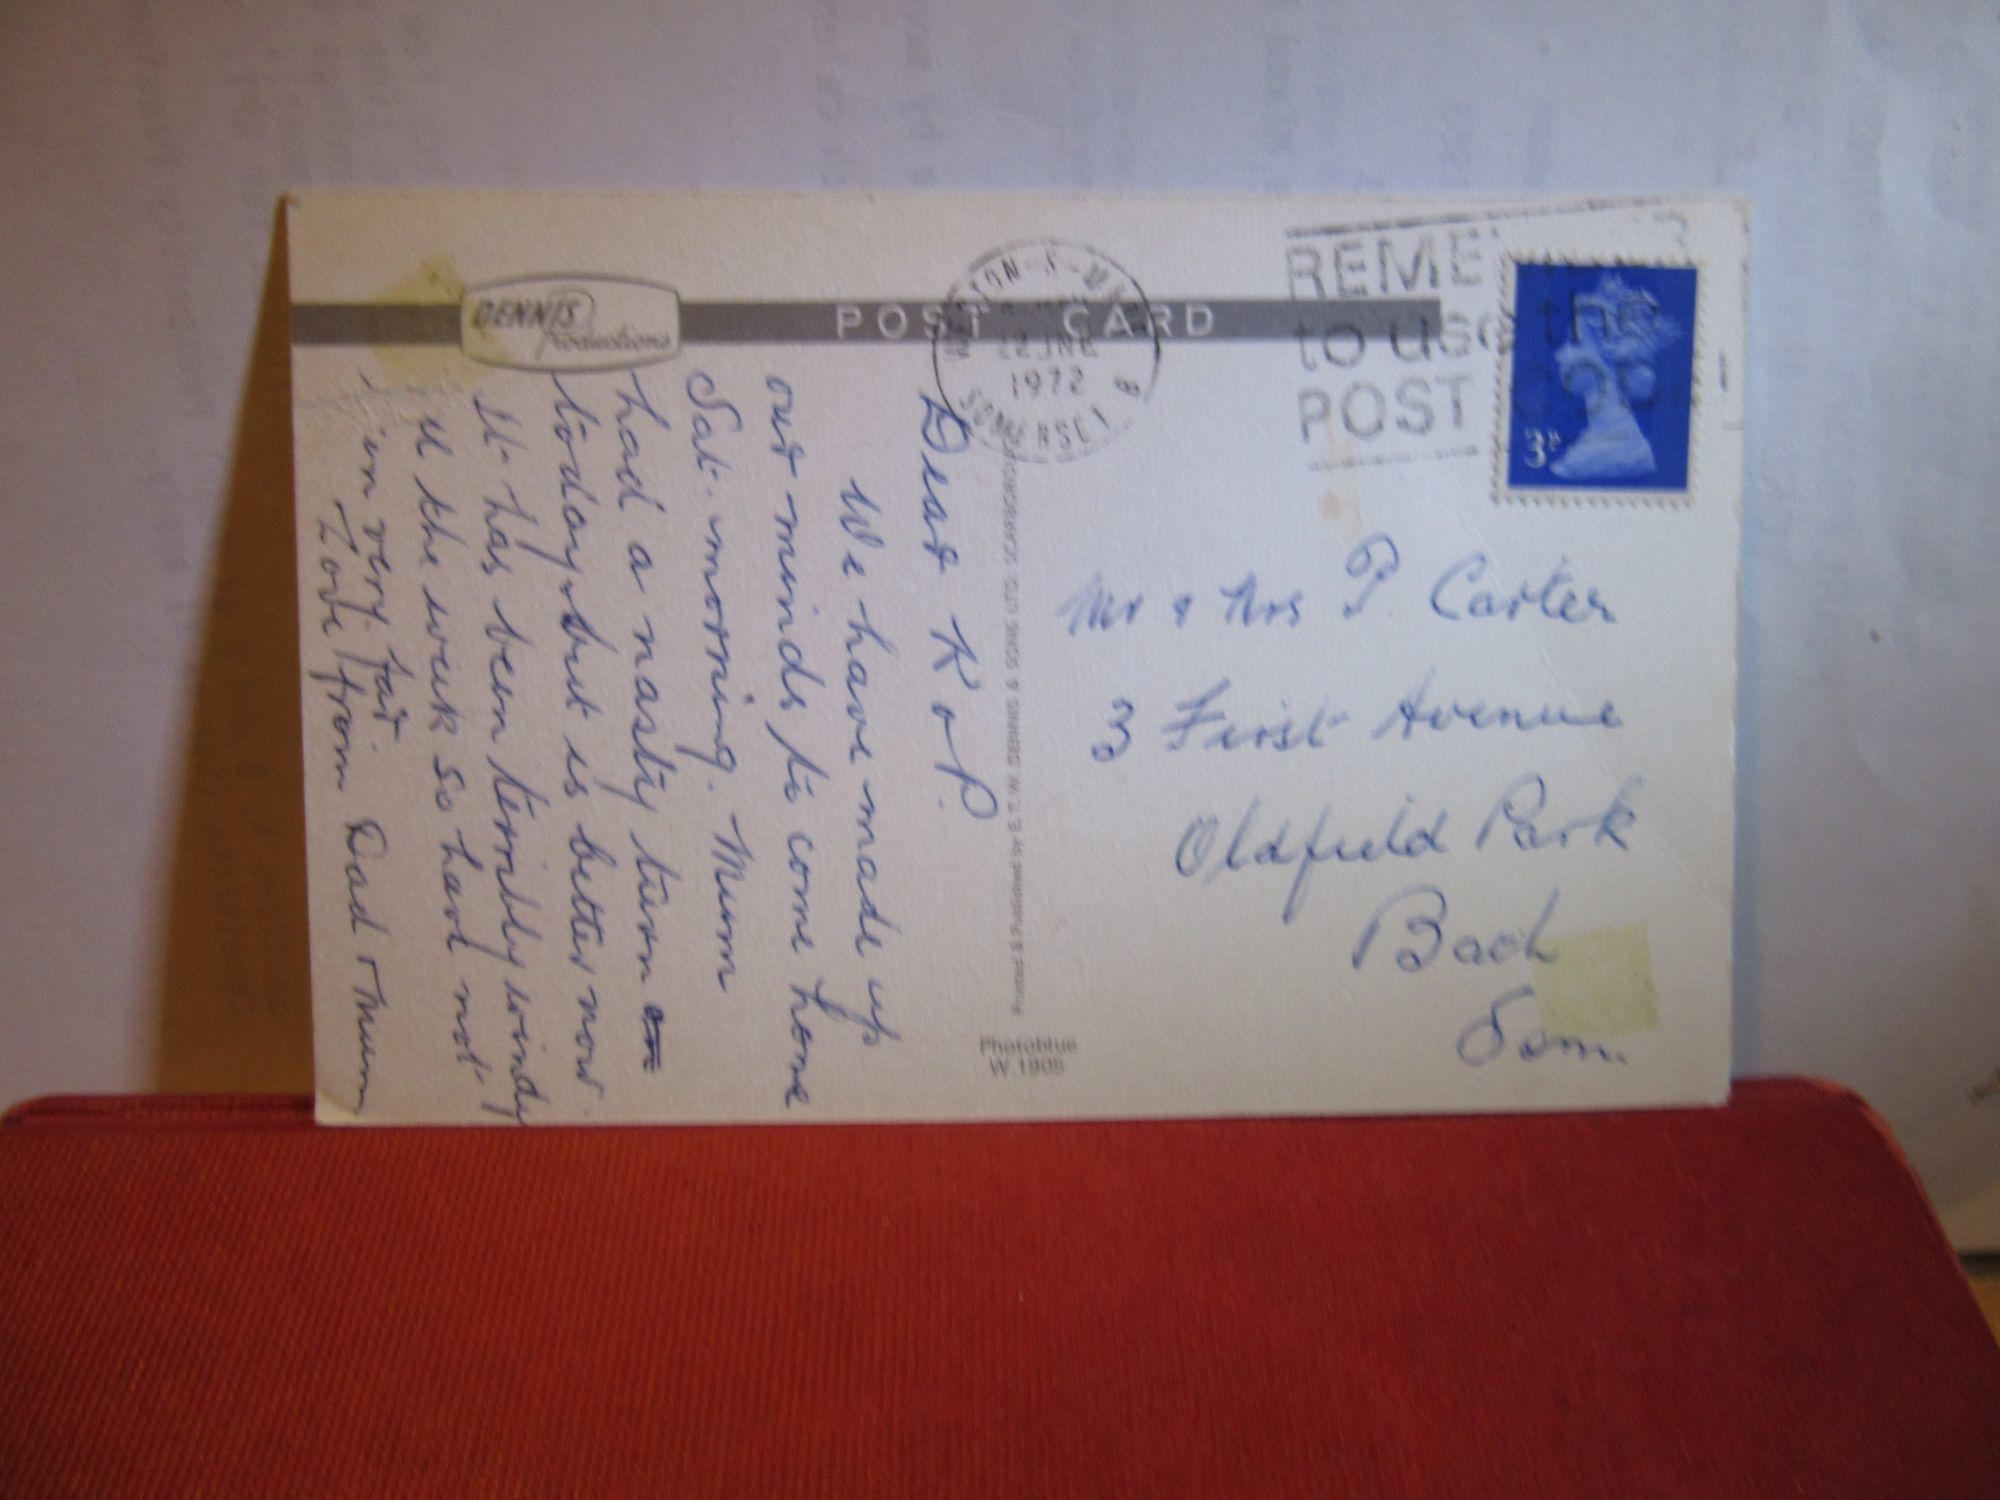 DENNIS
Productions
POST CARD
WESTON-S-MARE
22 JNE
1972
SOMERSET B
REME
to use the
POST CODE
3P
Dear K & P.
We have made up
our minds to come home
Sat. morning. Mum
had a nasty turn
today but is better now.
It has been terribly windy
the week so have not
in very far
Love from Dad & Mum
Printed & Published by E.T.W. DENNIS & SONS LTD. SCARBOROUGH
Photoblue
W.1905
Mr & Mrs P. Carter
3 First Avenue
Oldfield Park
Bath
Som.